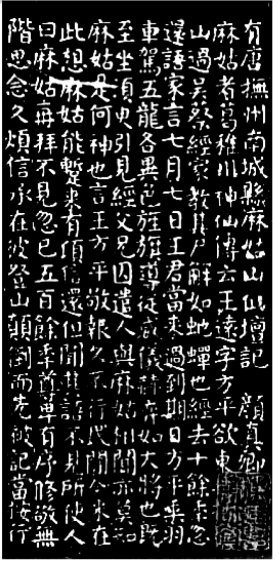 有唐撫州南城縣麻姑山仙壇記 顏真卿
麻姑者葛稚川神仙傳云王遠字方平欲東
山過吳蔡經家教其尸解如蛇蟬也經去十餘年忽
還語家言七月七日王君當來過到期日方平乘羽
車駕五龍各異色旌旗導從威儀赫奕如大將也既
至坐須臾引見經父兄因遣人與麻姑相聞亦莫知
麻姑是何神也言王方平敬報久不行代間今來在
此想麻姑能蹔來有頃信還但聞其語不見所使人
曰麻姑再拜不見忽已五百餘年尊卑有序修敬無
階思念久煩信承在彼登山顛倒而先被記當按行